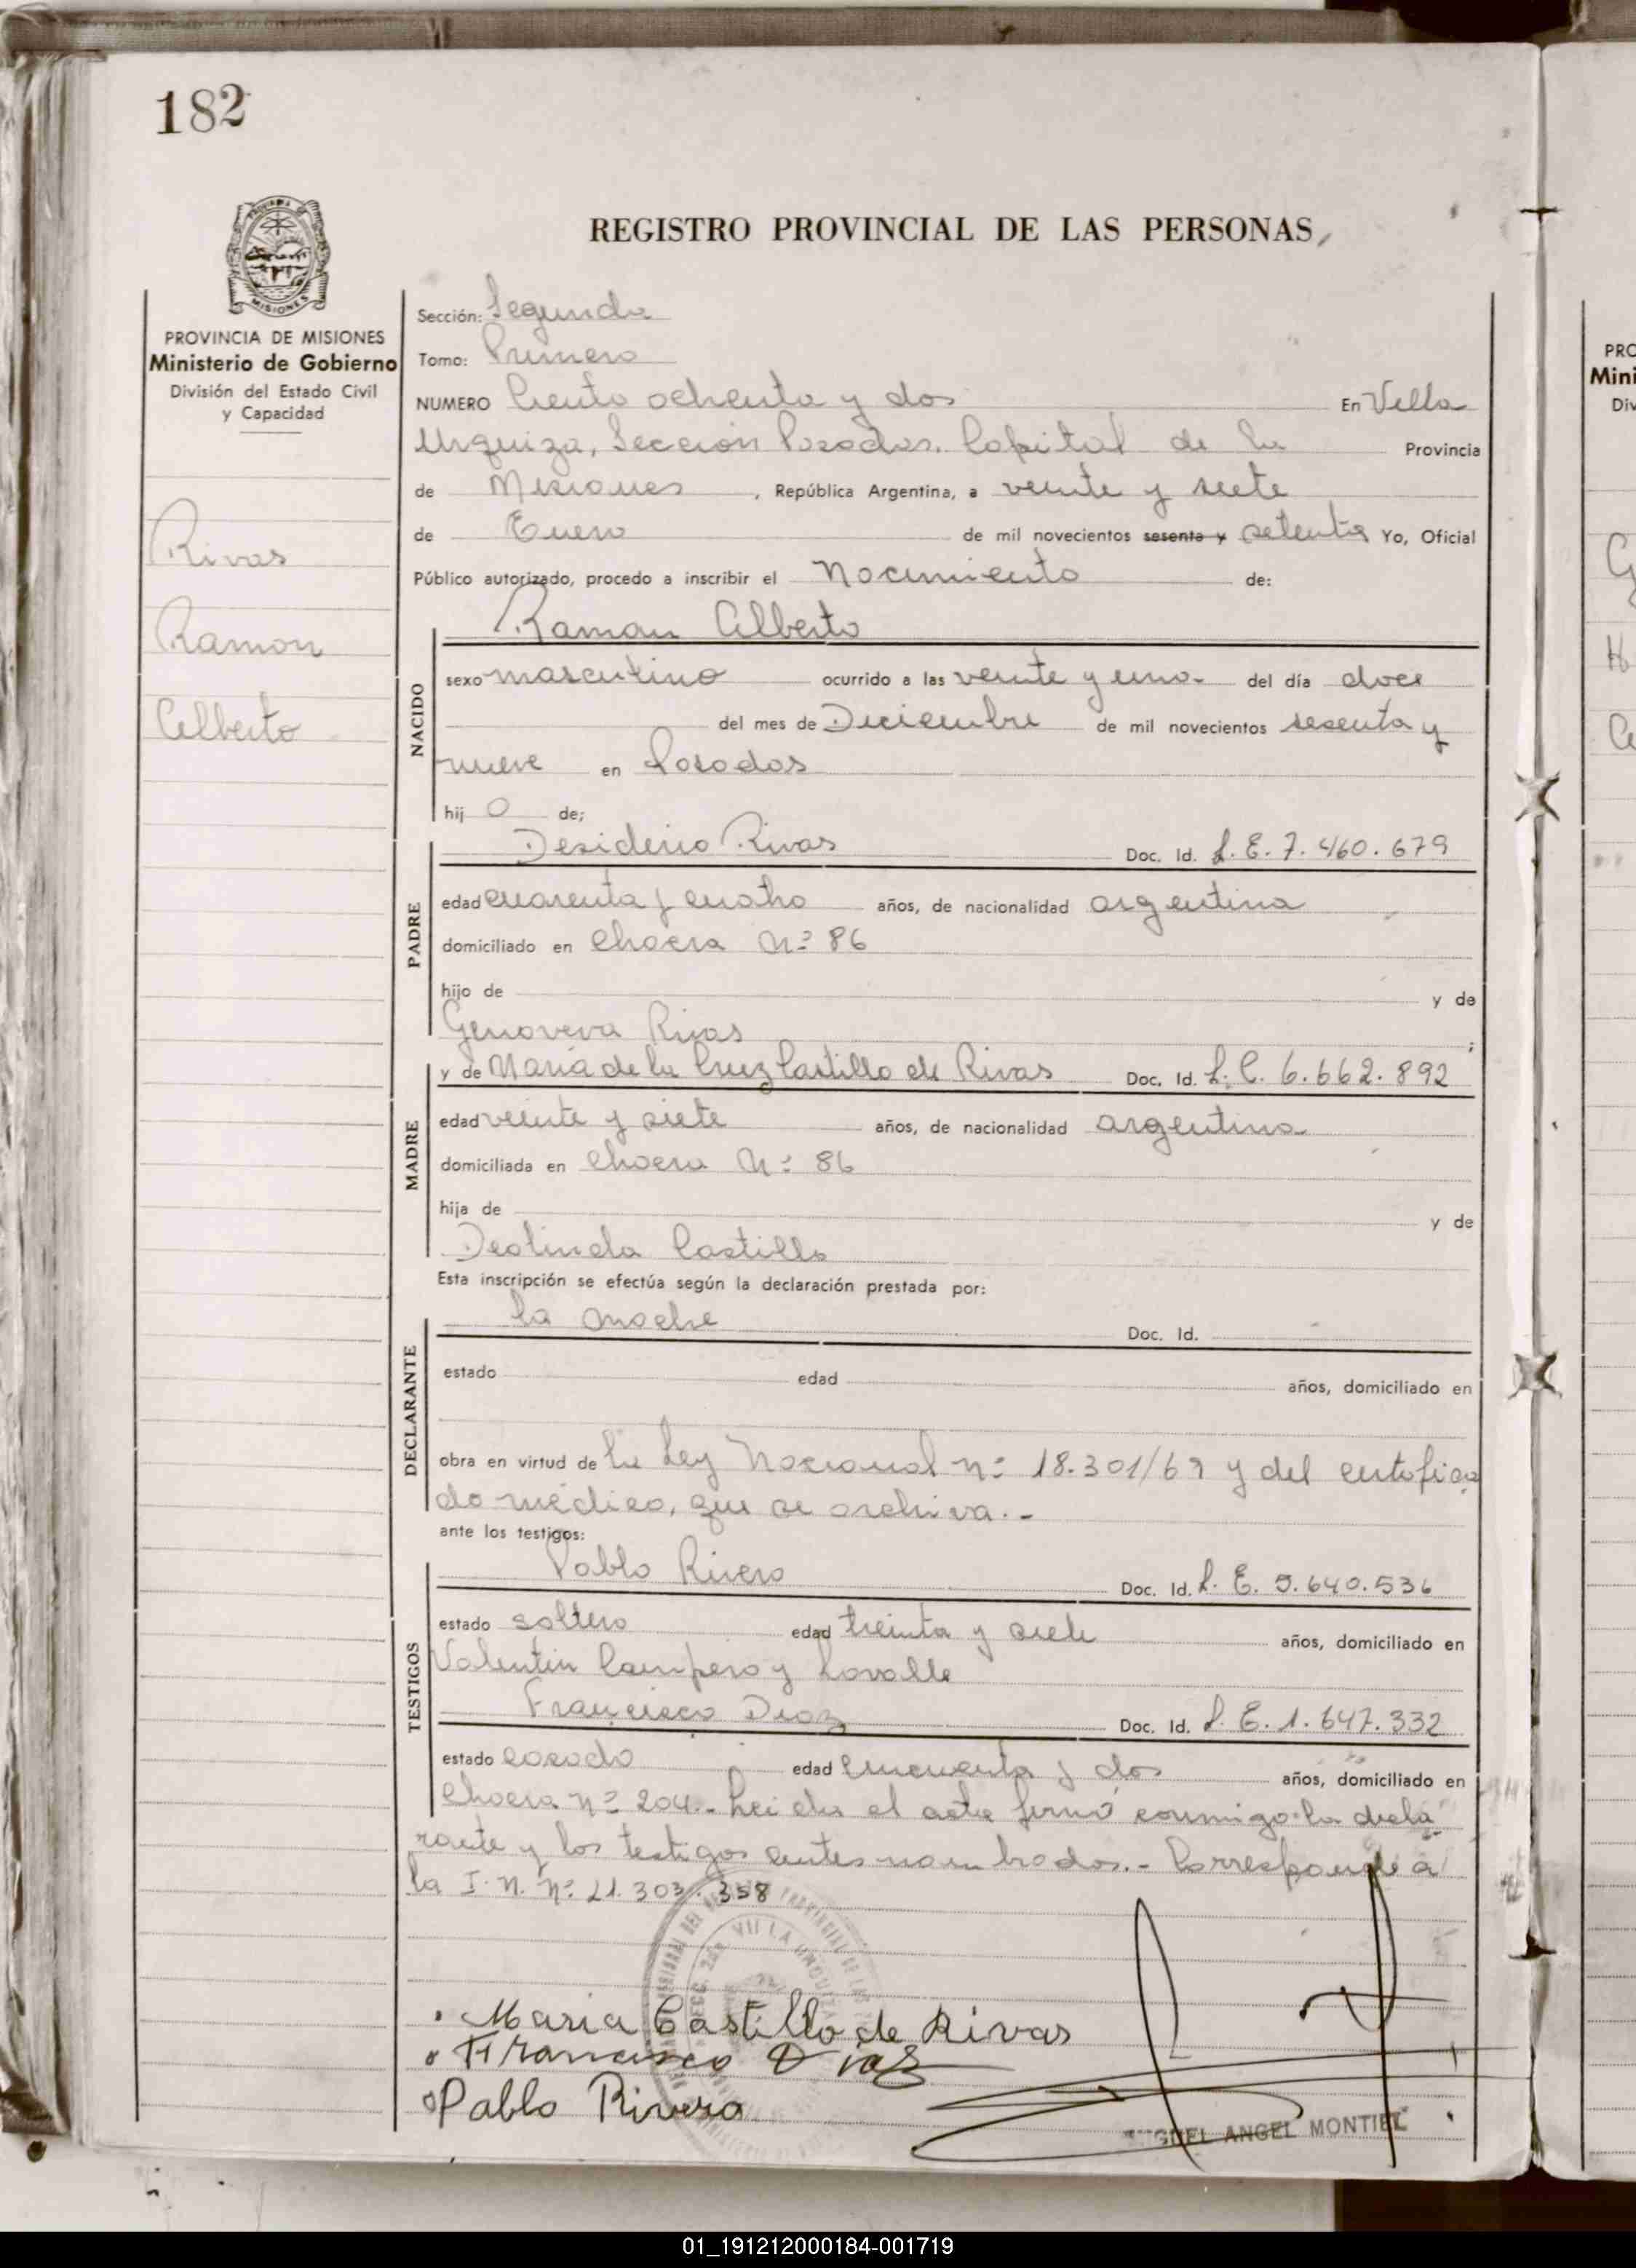 182
REGISTRO PROVINCIAL DE LAS PERSONAS
MISIONES
PROVINCIA DE MISIONES
Ministerio de Gobierno
División del Estado Civil
y Capacidad
Rivas
Ramon
Alberto
Sección: Segunda
Tomo: Primero
NUMERO Ciento ochenta y dos En Villa
Urquiza, Sección Posadas, Capital de la Provincia
de Misiones, República Argentina, a veinte y siete
de Enero de mil novecientos sesenta y setenta Yo, Oficial
Público autorizado, procedo a inscribir el Nacimiento de:
Ramon Alberto
NACIDO
sexo masculino ocurrido a las veinte y una- del día doce
del mes de Diciembre de mil novecientos sesenta y
nueve en Posadas
hij o de;
Desiderio Rivas Doc. Id. L. E. 7.460.679
PADRE
edad cuarenta y cuatro años, de nacionalidad argentina
domiciliado en Chacra Nº 86
hijo de y de
Genoveva Rivas ;
y de Maria de la Cruz Castillo de Rivas Doc. Id. L. C. 6.662.892
MADRE
edad veinte y siete años, de nacionalidad argentina
domiciliada en Chacra Nº 86
hija de y de
Deolinda Castillo
Esta inscripción se efectúa según la declaración prestada por:
la madre Doc. Id.
DECLARANTE
estado edad años, domiciliado en
obra en virtud de la Ley Nacional nº 18.301/69 y del certifica
do médico, que se archiva.-
ante los testigos:
Pablo Rivero Doc. Id. L. E. 5.640.536
TESTIGOS
estado soltero edad treinta y siete años, domiciliado en
Valentin Campero y Lavalle
Francisco Diaz Doc. Id. L. E. 1.647.332
estado casado edad cincuenta y dos años, domiciliado en
Chacra nº 204.- Leida el acta firmó conmigo la decla
rante y los testigos antes nombrados.- Corresponde a
la I. N. Nº 21.303.358
Maria Castillo de Rivas
Francisco Diaz
Pablo Rivero
MIGUEL ANGEL MONTIEL
PRO
Mini
Div
01_191212000184-001719